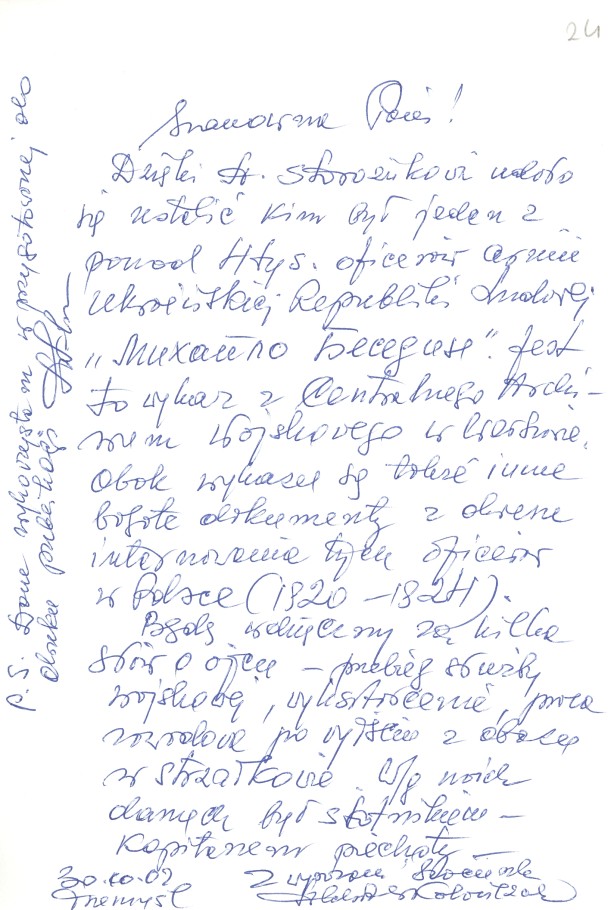 24
Szanowna Pani!
Dzięki dr. Storożukowi udało
się ustalić kim był jeden z
ponad 4 tys. oficerów armii
Ukraińskiej Republiki Ludowej
„Михайло". Jest
to wykaz z Centralnego Archi-
wum Wojskowego w Warszawie.
Obok wykazu są także inne
bogate dokumenty z okresu
internowania tych oficerów
w Polsce (1920 – 1924).
Będę wdzięczny za kilka
słów o ojcu – przebieg służby
wojskowej, wykształcenie, praca
zawodowa po wyjściu z obozu
w Strzałkowie. Wg moich
danych był sotnikiem –
kapitanem piechoty
30.10.02 Z wyrazami szacunku
Przemyśl
P.S. Dane wykorzystam w przygotowanej do
druku publikacji